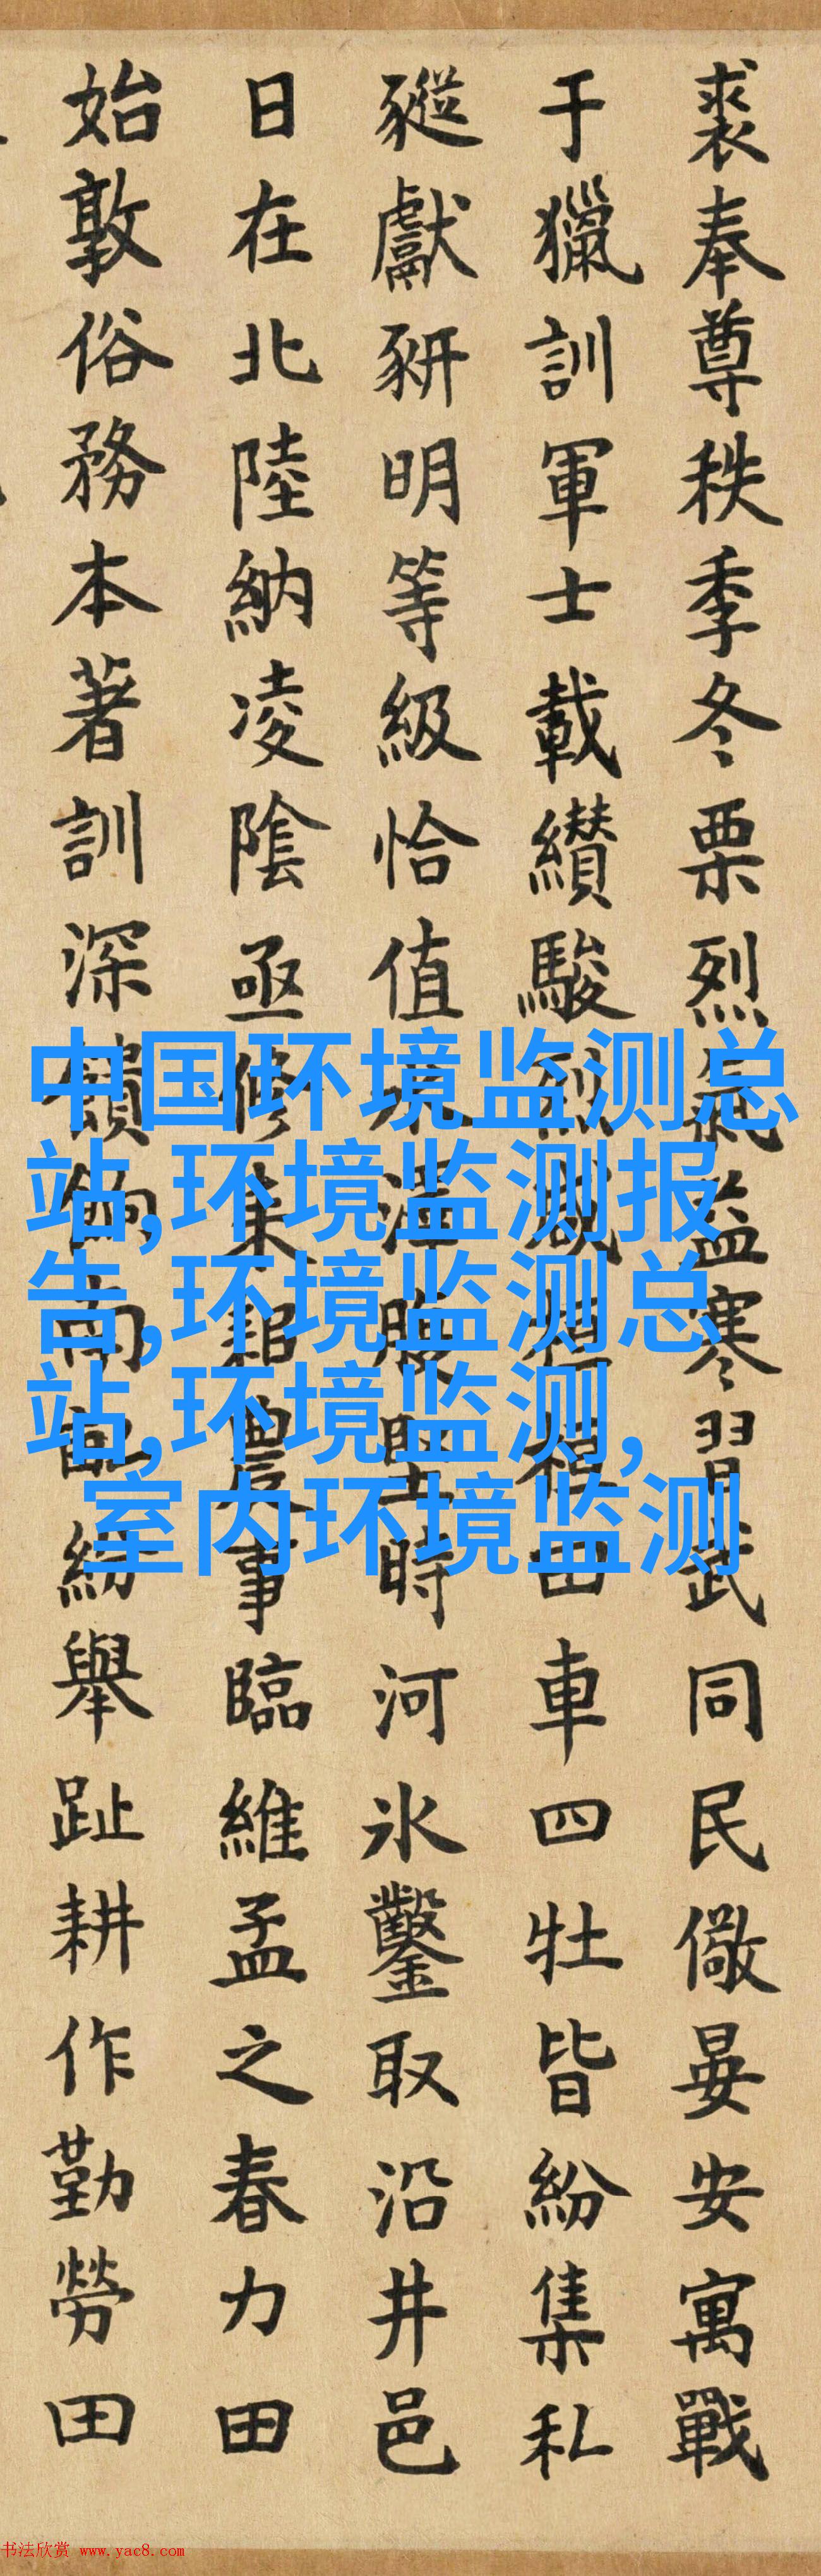 裘奉尊秩季冬栗烈氣益寒習武同民儆晏安寓戰
于獵訓軍士載纘駿烈桓桓田車四牡皆紛集私
豵獻豜明等級恰值水澤腹堅時河氷鑿取沿井邑
日在北陸納凌陰亟修耒耜農事臨維孟之春力田
始敦俗務本著訓深饋餉南畝紛舉趾耕作勤勞田
中国环境监测总
站,环境监测报
告,环境监测总
站,环境监测,
室内环境监测
书法欣赏 www.yac8.com